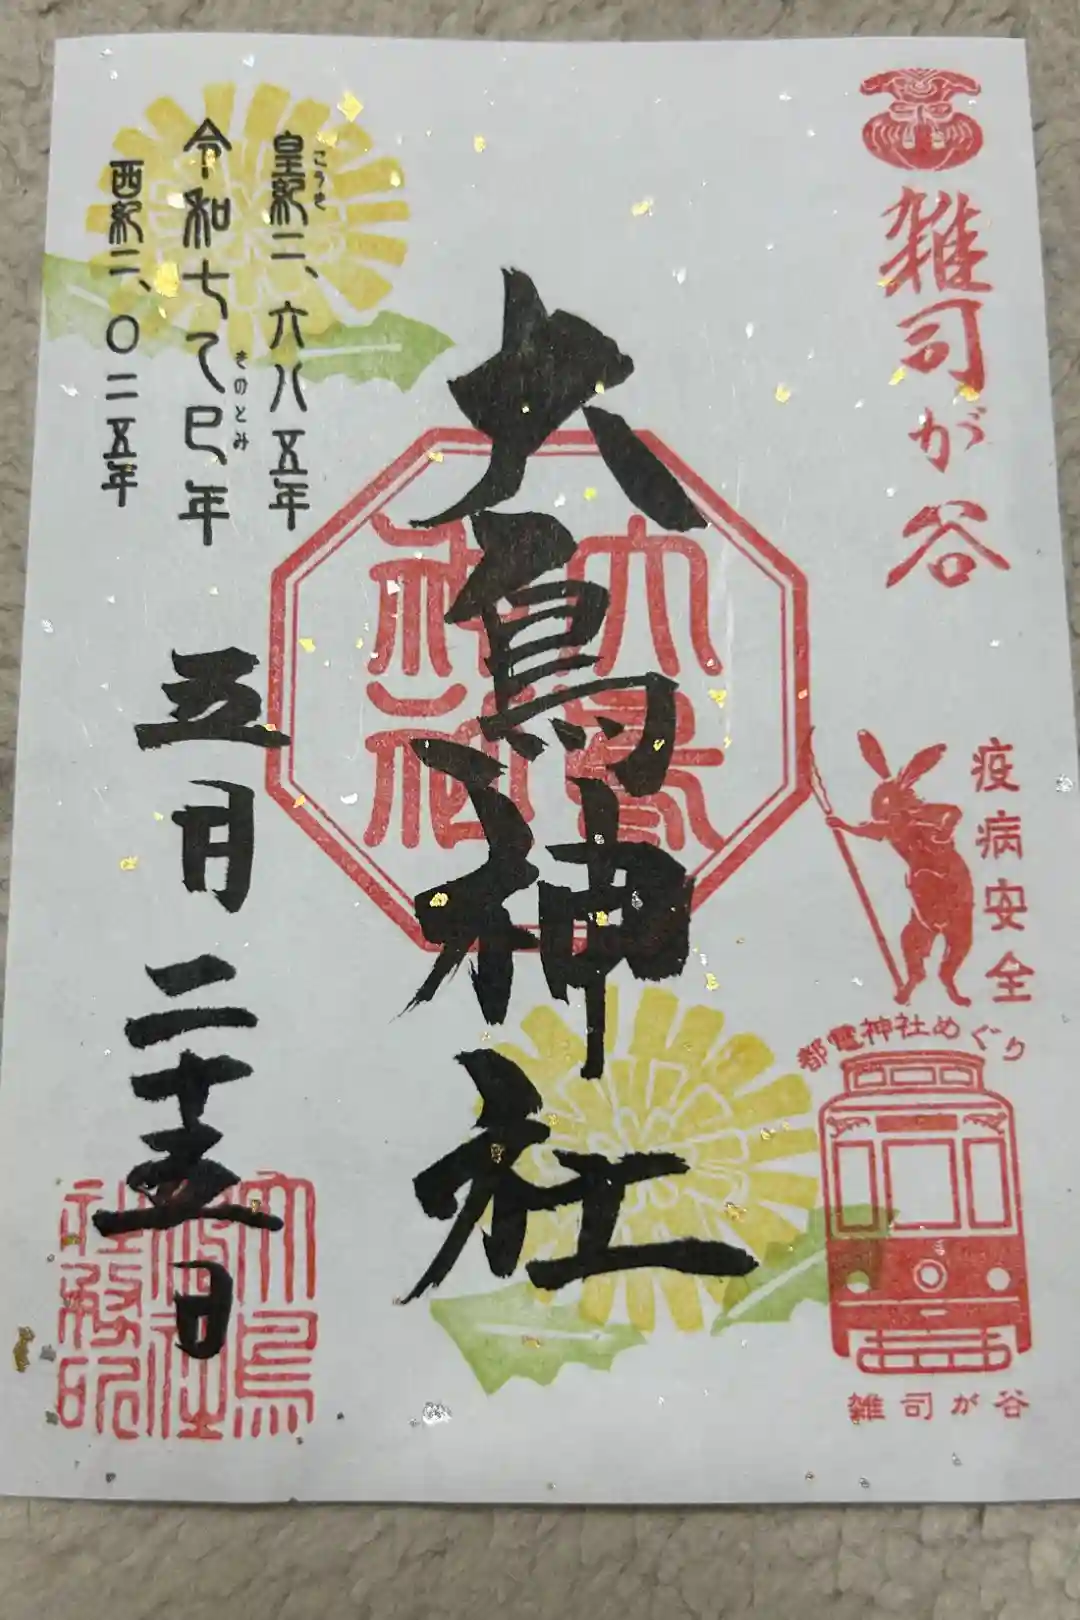 雑司が谷
疫病安全
都電神社めぐり
雑司が谷
大鳥神社
大鳥
神社
皇紀二、六八五年
こうき
令和七乙巳年
きのとみ
西紀二、〇二五年
五月二十五日
大鳥
神社
社務印